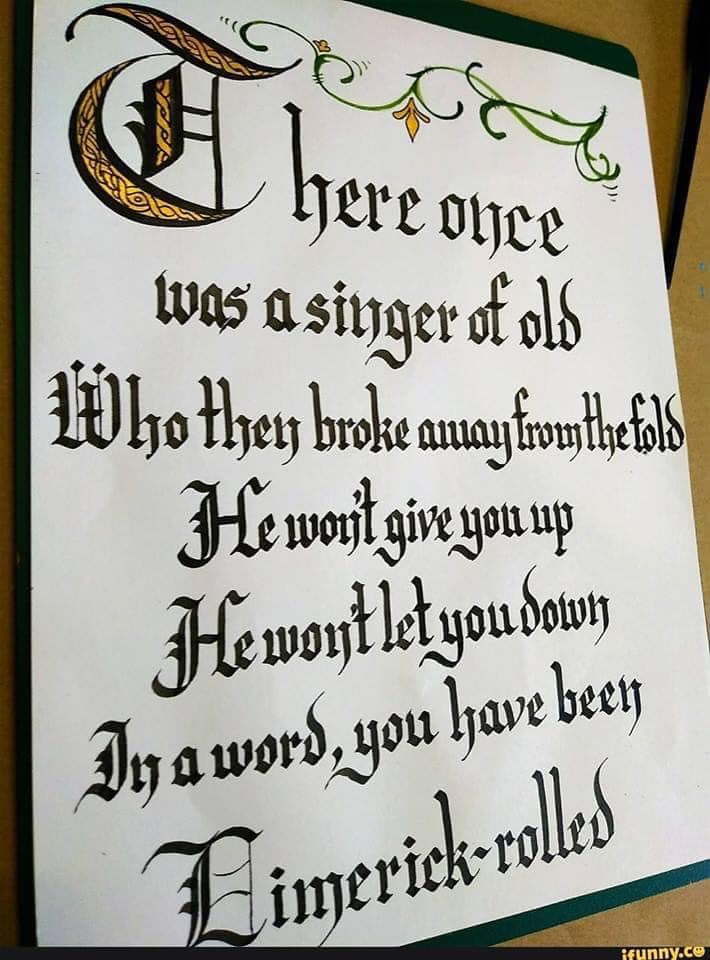 There once
was a singer of old
Who then broke away from the fold
He won't give you up
He won't let you down
In a word, you have been
Limerick-rolled
ifunny.co